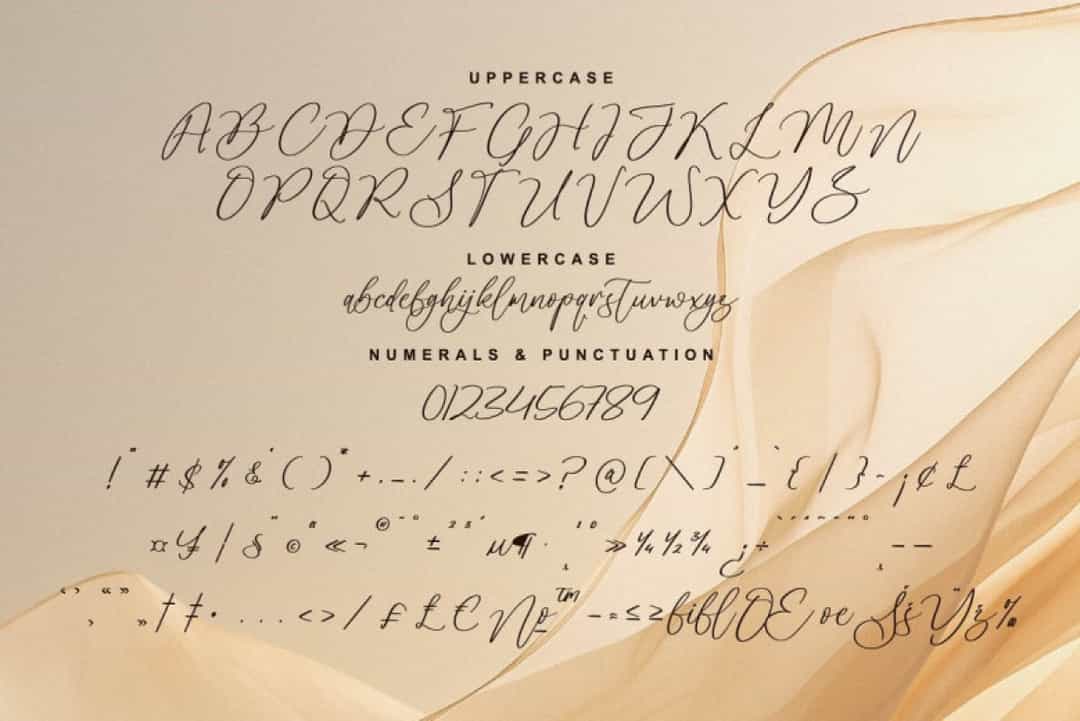 UPPERCASE
ABCDEFGHIJKLMN
OPQRSTUVWXYZ
LOWERCASE
abcdefghijklmnopqrstuvwxyz
NUMERALS & PUNCTUATION
0123456789
! " # $ % & ' ( ) * + . _ . / : : < = > ? @ [ \ ] ^ _ ` { | } ~ ¡ ¢ £
¤ ¥ | § ¨ © ª « ¬ ® ¯ ° ± ² ³ ´ µ ¶ · ¸ ¹ º » ¼ ½ ¾ ¿ ÷ – —
‘ ’ ‚ “ ” „ † ‡ • . . . ‹ › / ₣ ₤ € № ™ − ≈ ≤ ≥ fi fl OE oe Š š Ÿ ž ‰